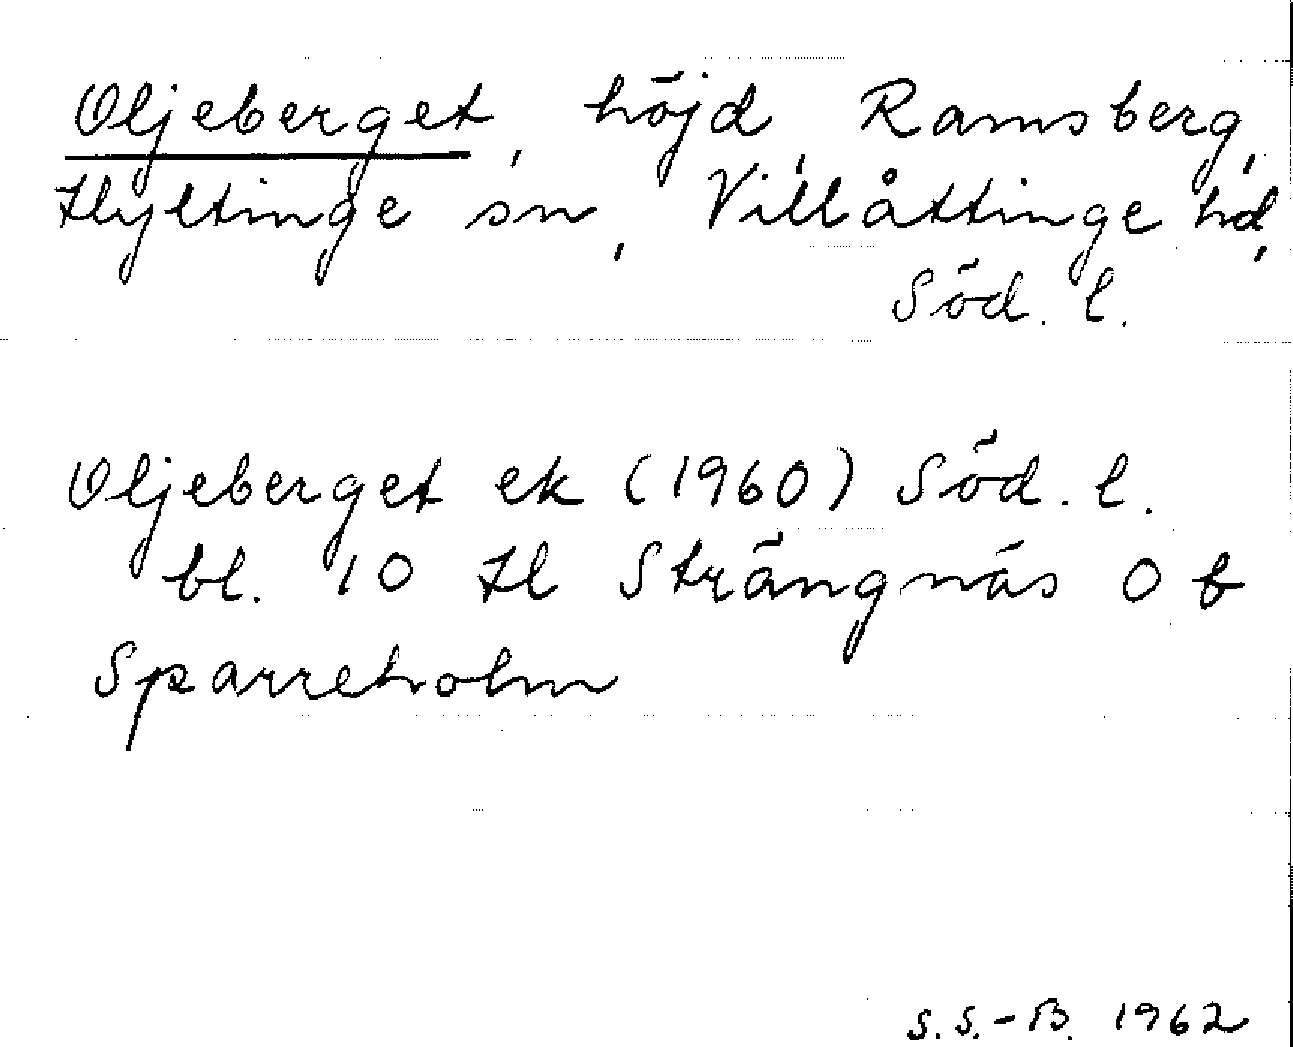 Oljeberget, höjd Ramsberg,
Hyltinge sn, Villåttinge hd,
Söd. l.
Oljeberget ek (1960) Söd. l.
bl. 10 H Strängnäs 0 b
Sparreholm
S.S.-B. 1962